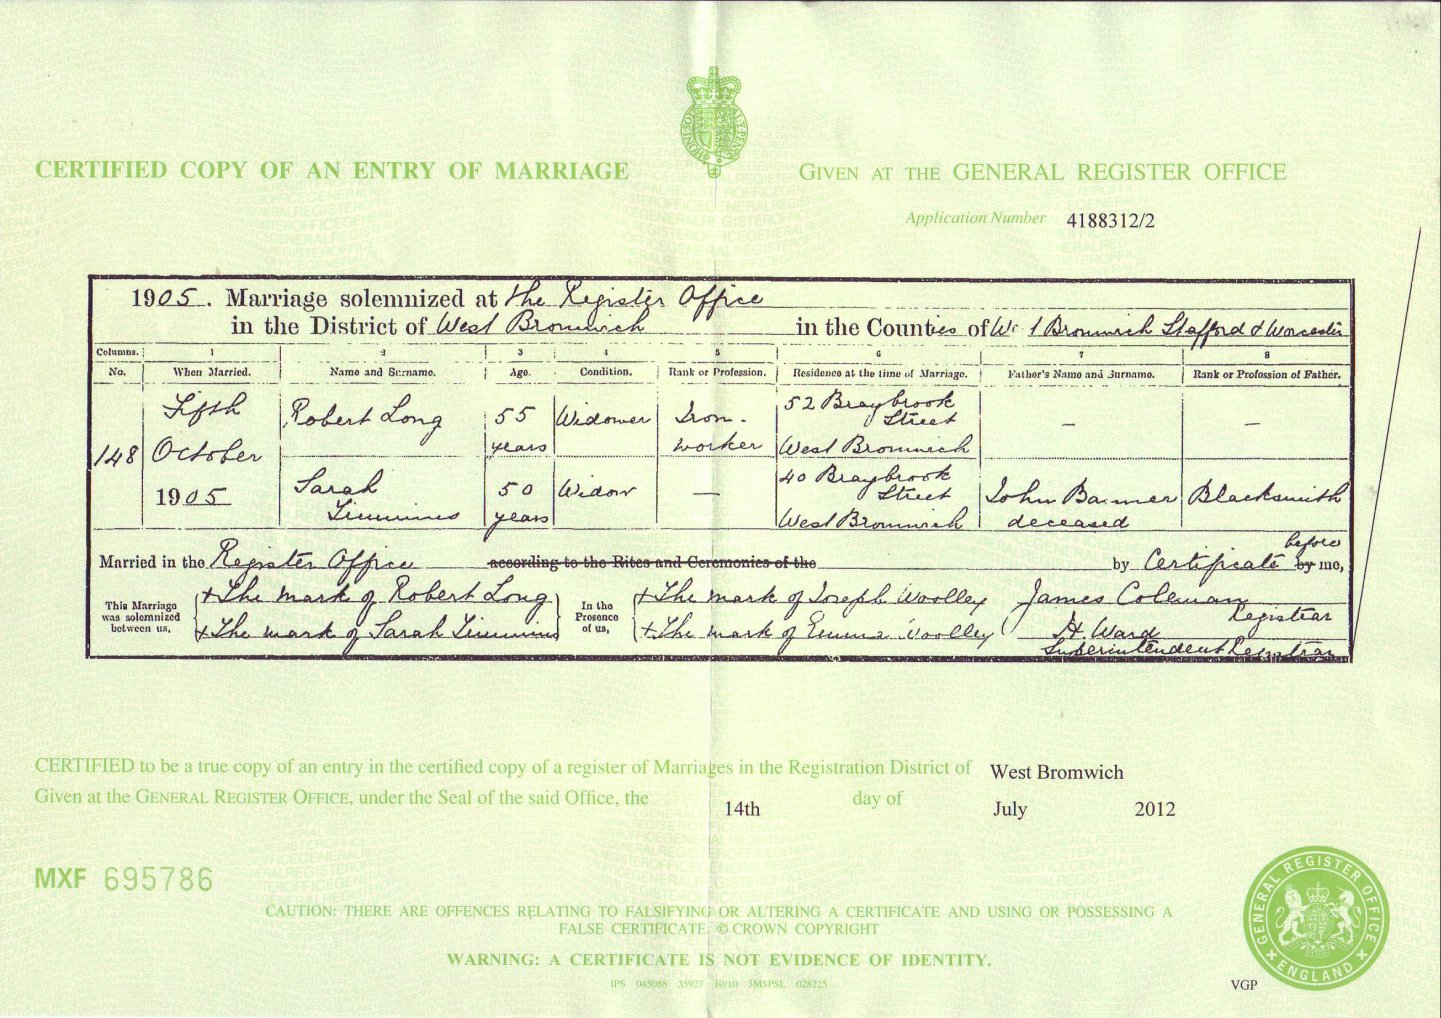 CERTIFIED COPY OF AN ENTRY OF MARRIAGE
GIVEN AT THE GENERAL REGISTER OFFICE
Application Number 4188312/2
1905. Marriage solemnized at the Register Office
in the District of West Bromwich in the Counties of West Bromwich Stafford & Worcester
Columns. 1 2 3 4 5 6 7 8
No. When Married. Name and Surname. Age. Condition. Rank or Profession. Residence at the time of Marriage. Father's Name and Surname. Rank or Profession of Father.
148
Fifth
October
1905
Robert Long
55
years
Widower
Iron-
worker
52 Braybrook
Street
West Bromwich
—
—
Sarah
Timmins
50
years
Widow
—
40 Braybrook
Street
West Bromwich
John
deceased
Blacksmith
Married in the Register Office according to the Rites and Ceremonies of the by Certificate before by me,
This Marriage
was solemnized
between us,
+ The mark of Robert Long
+ The mark of Sarah Timmins
In the
Presence
of us,
+ The mark of Joseph Woolley
+ The mark of Emma Woolley
James Coleman
Registrar
H Ward
Superintendent Registrar
CERTIFIED to be a true copy of an entry in the certified copy of a register of Marriages in the Registration District of West Bromwich
Given at the GENERAL REGISTER OFFICE, under the Seal of the said Office, the 14th day of July 2012
MXF 695786
CAUTION: THERE ARE OFFENCES RELATING TO FALSIFYING OR ALTERING A CERTIFICATE AND USING OR POSSESSING A
FALSE CERTIFICATE. © CROWN COPYRIGHT
WARNING: A CERTIFICATE IS NOT EVIDENCE OF IDENTITY.
IPS 045088 35927 10/10 3MSPSL 028225
VGP
GENERAL REGISTER OFFICE
ENGLAND